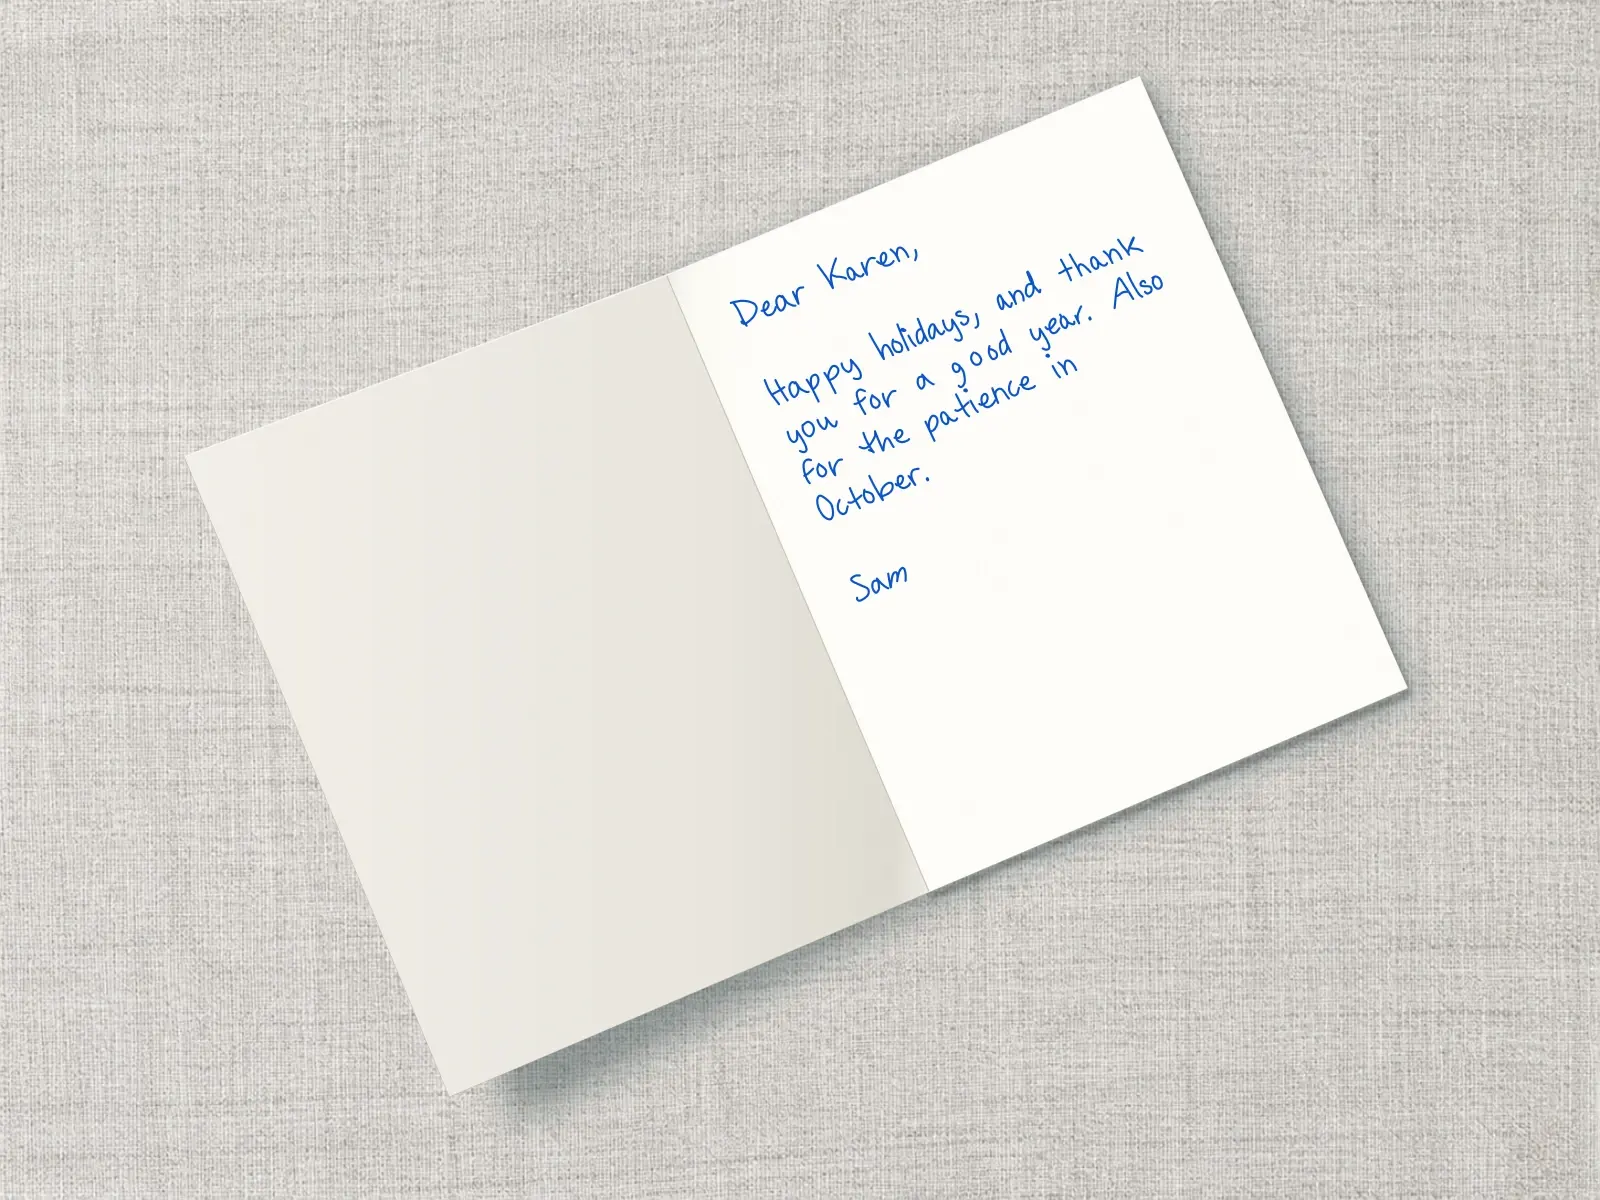 Dear Karen,
Happy holidays, and thank
you for a good year. Also
for the patience in
October.
Sam